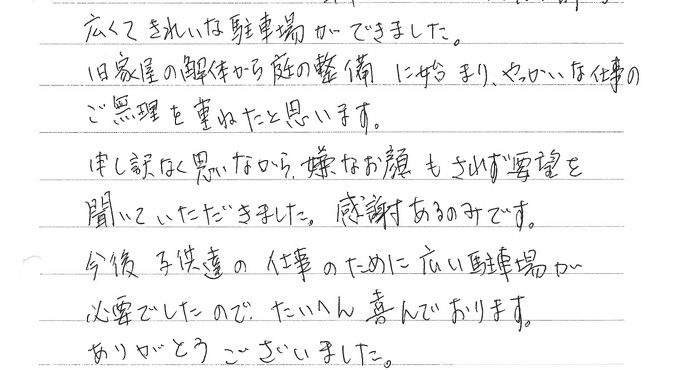 広くてきれいな駐車場ができました。
旧家屋の解体から庭の整備に始まり、やっかいな仕事の
ご無理を重ねたと思います。
申し訳なく思いながら、嫌なお顔もされず要望を
聞いていただきました。感謝あるのみです。
今後子供達の仕事のために広い駐車場が
必要でしたので、たいへん喜んでおります。
ありがとうございました。